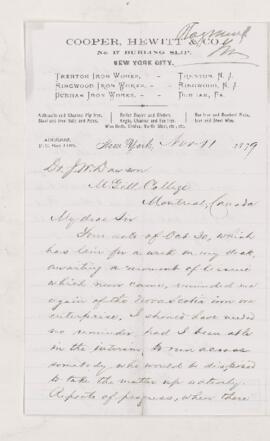 COOPER, HEWITT & CO.
No 17 BURLING SLIP,
NEW YORK CITY.
TRENTON IRON WORKS, - TRENTON, N. J.
RINGWOOD IRON WORKS, - RINGWOOD, N. J.
DURHAM IRON WORKS, - DURHAM, PA.
New York, Nov 11 1879
Dr. J. W. Dawson
McGill College
Montreal, Canada
My dear Sir
Your note of Oct 30, which
has lain for a week on my desk,
awaiting a moment of leisure
which never came, reminded me
again of the Nova Scotia iron ore
enterprise. I should have needed
no reminder, had I been able
in the interim, to run across
somebody who would be disposed
to take the matter up actively.
Reports of progress, when there